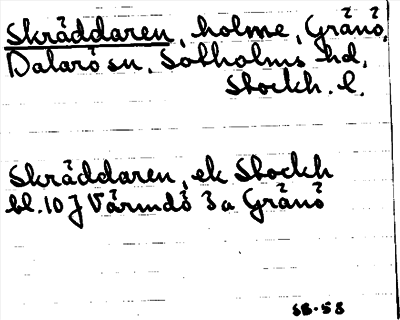 Skräddaren, holme, Gränö,
Dalarö sn, Sotholms hd,
Stockh. l.
Skräddaren, ek Stockh
bl. 10 J Värmdö 3 a Gränö
SB-58